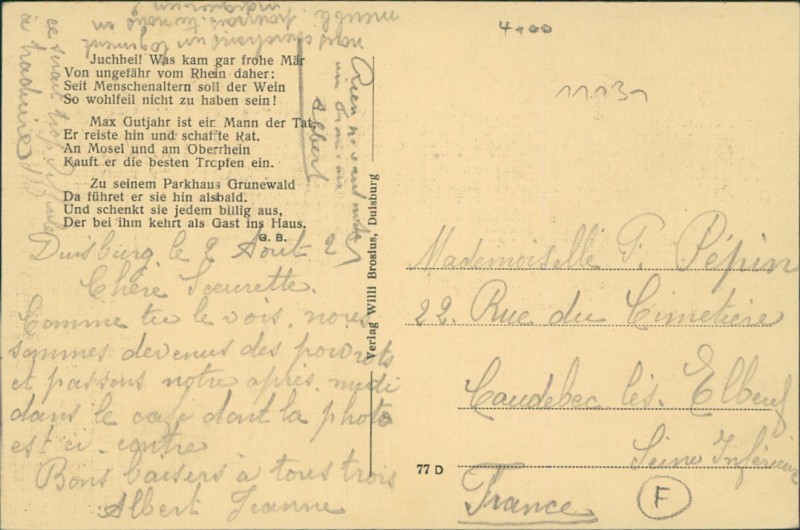 4+00
11131
nous cherchons un logement
meublé, pourrais-tu nous en
ce serait trop
à traduire
Rien ne vaut
un
Albert
Juchhei! Was kam gar frohe Mär
Von ungefähr vom Rhein daher:
Seit Menschenaltern soll der Wein
So wohlfeil nicht zu haben sein!
Max Gutjahr ist ein Mann der Tat,
Er reiste hin und schaffte Rat.
An Mosel und am Oberrhein
Kauft er die besten Tropfen ein.
Zu seinem Parkhaus Grunewald
Da führet er sie hin alsbald.
Und schenkt sie jedem billig aus,
Der bei ihm kehrt als Gast ins Haus.
G. B.
Duisburg, le 2 Août 21
Chère Soeurette.
Comme tu le vois, nous
sommes devenus des poivrots
et passons notre après-midi
dans le café dont la photo
est ci-contre
Bons baisers à tous trois
Albert Jeanne
Verlag Willi Brosius, Duisburg
Mademoiselle P. Pépin
22. Rue du Cimetière
Caudebec-lès-Elbeuf
Seine Inférieure
France
F
77 D